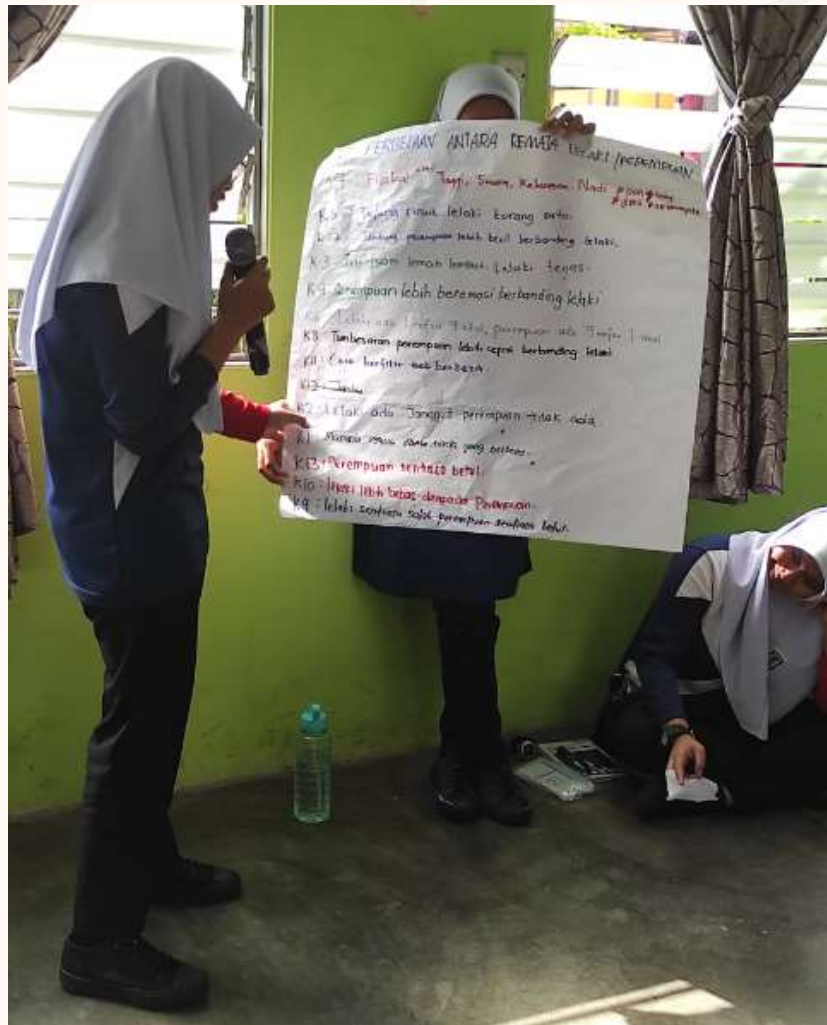 PERBEZAAN ANTARA REMAJA LELAKI / PEREMPUAN
Fizikal Suara, Nadi
K5 lelaki kurang
perempuan lebih kecil berbanding lelaki.
K3 Perempuan lemah lembut. Lelaki tegas.
K4 Perempuan lebih beremosi berbanding lelaki
Lelaki ada 1 nafsu 9 akal, perempuan ada 9 nafsu 1 akal
K8 Tumbesaran perempuan lebih cepat berbanding lelaki
K11 Cara berfikir berbeza.
K12
K2 Lelaki ada Janggut perempuan tidak ada
K1 yang berbeza
K13 : Perempuan sentiasa betul.
K10 : lelaki lebih bebas daripada Perempuan.
K9 : lelaki sentiasa salah perempuan sentiasa betul.